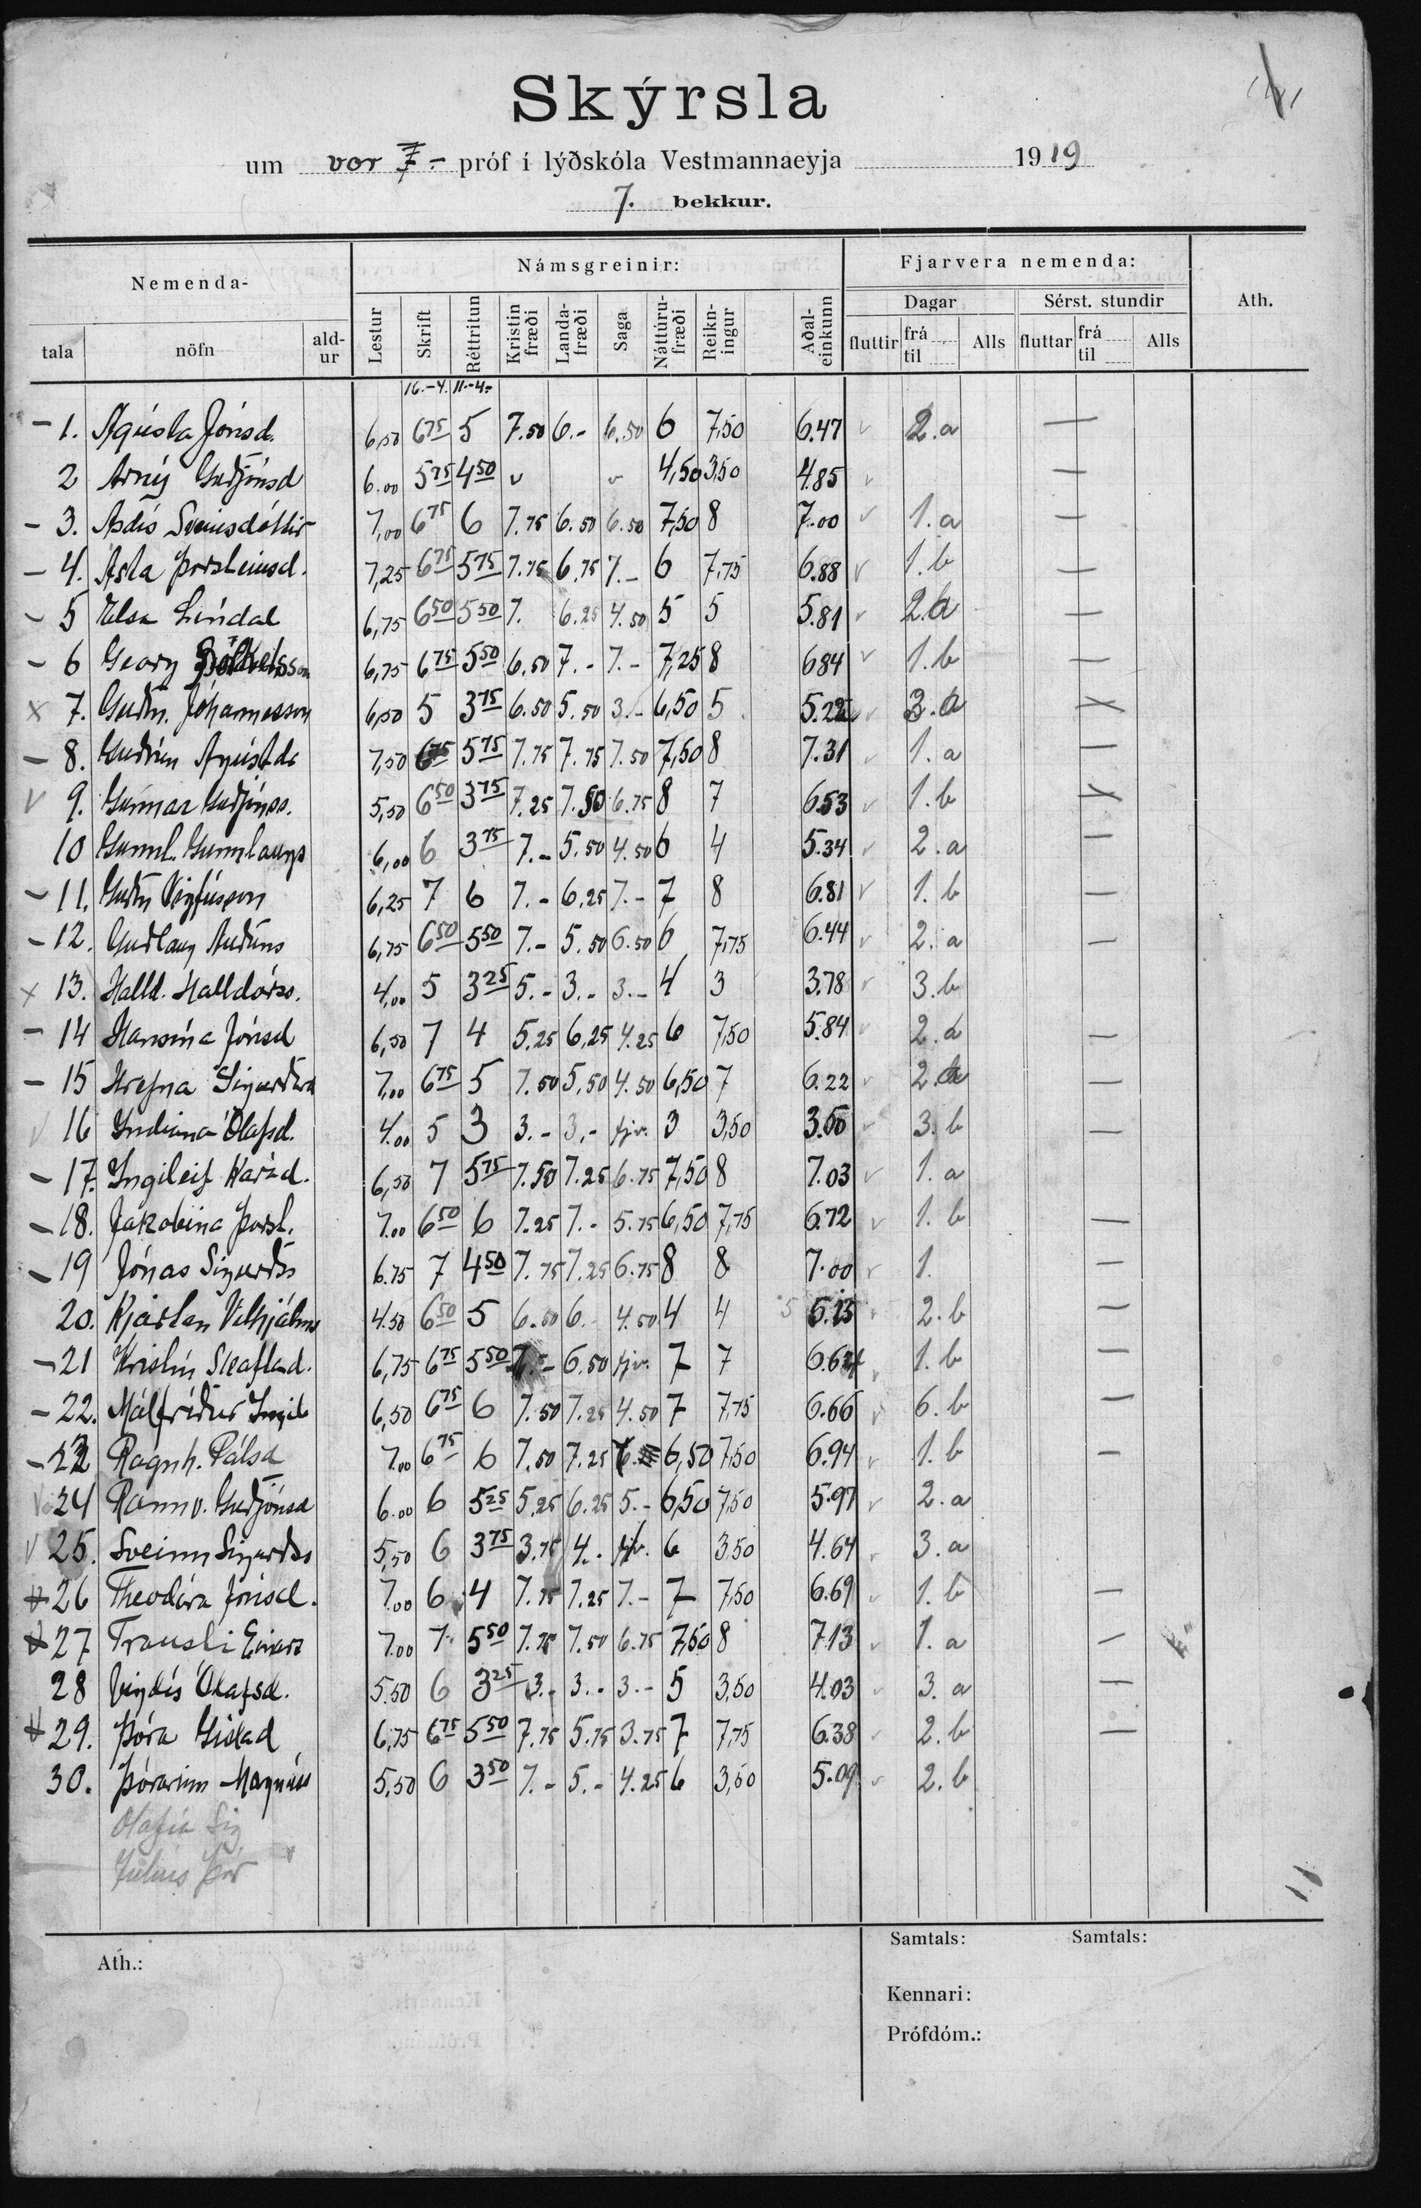 Skýrsla
um vor 7- próf í lýðskóla Vestmannaeyja 1919
7. bekkur.
Nemenda- Námsgreinir: Fjarvera nemenda: Ath.
Dagar Sérst. stundir
tala nöfn ald-ur Lestur Skrift Réttritun Kristin fræði Landa-fræði Saga Náttúru-fræði Reikn-ingur Aðal-einkunn fluttir frá til Alls fluttar frá til Alls
16.-4. 11.-4.
- 1. Ágústa Jónsd. 6,50 6 75 5 7.50 6.- 6.50 6 7,50 6.47 v 2.a —
2 Árný Guðjónsd 6.00 5 25 4 50 v v 4,50 3,50 4.85 v —
- 3. Ásdís Sveinsdóttir 7,00 6 75 6 7.75 6.50 6.50 7,50 8 7.00 v 1.a —
- 4. Ásta Þorsteinsd. 7,25 6 75 5 75 7.75 6.75 7.- 6 7,75 6.88 v 1.b —
- 5 Elsa Lindal 6,75 6 50 5 50 7. 6.25 4.50 5 5 5.81 v 2.a —
- 6 Georg 6,75 6 75 5 50 6.50 7.- 7.- 7,25 8 6.84 v 1.b —
x 7. Guðm. Jóhannesson 6,50 5 3 75 6.50 5.50 3.- 6,50 5 5.22 v 3.a
- 8. Guðrún Ágústd. 7,50 6 75 5 75 7.75 7.75 7.50 7,50 8 7.31 v 1.a —
v 9. Gunnar Guðjónss. 5,50 6 50 3 75 7.25 7.50 6.75 8 7 6.53 v 1.b
10 Gunnl. Gunnlaugs 6,00 6 3 75 7.- 5.50 4.50 6 4 5.34 v 2.a —
- 11. Guðm Vigfússon 6,25 7 6 7.- 6,25 7.- 7 8 6.81 v 1.b —
- 12. Guðlaug Auðuns 6,75 6 50 5 50 7.- 5.50 6.50 6 7,75 6.44 v 2.a —
x 13. Halld. Halldórss. 4,00 5 3 25 5.- 3.- 3.- 4 3 3.78 v 3.b
- 14 Hansína Jónsd 6,50 7 4 5.25 6,25 4.25 6 7,50 5.84 v 2.a —
- 15 Hrefna Sigurðard 7,00 6 75 5 7.50 5,50 4.50 6,50 7 6.22 v 2.a —
v 16 Indíana Ólafsd. 4.00 5 3 3.- 3.- fjv. 3 3,50 v 3.b —
- 17. Ingileif Kárad. 6,50 7 5 75 7.50 7.25 6.75 7,50 8 7.03 v 1.a
- 18. Jakobína Þorst. 7.00 6 50 6 7.25 7.- 5.75 6,50 7,75 6.72 v 1.b —
- 19 Jónas Sigurðss 6.75 7 4 50 7.75 7.25 6.75 8 8 7.00 v 1. —
20. Kjartan Vilhjálms 4.50 6 50 5 6.50 6. 4.50 4 4 2.b —
- 21 Kristín Skaftad. 6,75 6 75 5 50 6.50 fjv. 7 7 6.64 1.b —
- 22. Málfríður Ingib 6,50 6 75 6 7.50 7.25 4.50 7 7,75 6.66 v 6.b —
- 23 Ragnh. Pálsd 7.00 6 75 6 7.50 7.25 6. 6,50 7,50 6.94 v 1.b —
v 24 Rannv. Guðjónsd 6.00 6 5 25 5,25 6.25 5.- 6,50 7,50 5.97 v 2.a
v 25. Sveinn Sigurðss 5,50 6 3 75 3.75 4.- fjv. 6 3.50 4.64 v 3.a
26 Theodóra Jónsd. 7.00 6 4 7.75 7.25 7.- 7 7,50 6.69 v 1.b —
27 Trausti Einars 7.00 7 5 50 7.75 7.50 6.75 7,50 8 7.13 v 1.a —
28 Vigdís Ólafsd. 5.50 6 3 25 3.- 3.- 3.- 5 3,50 4.03 v 3.a —
29. Þóra Gíslad 6,75 6 75 5 50 7.75 5.75 3.75 7 7,75 6.38 v 2.b —
30. Þórarinn Magnúss 5,50 6 3 50 7.- 5.- 4.25 6 3,50 5.09 v 2.b
Ólafía Sig
Júlíus Þór
Ath.: Samtals: Samtals:
Kennari:
Prófdóm.: